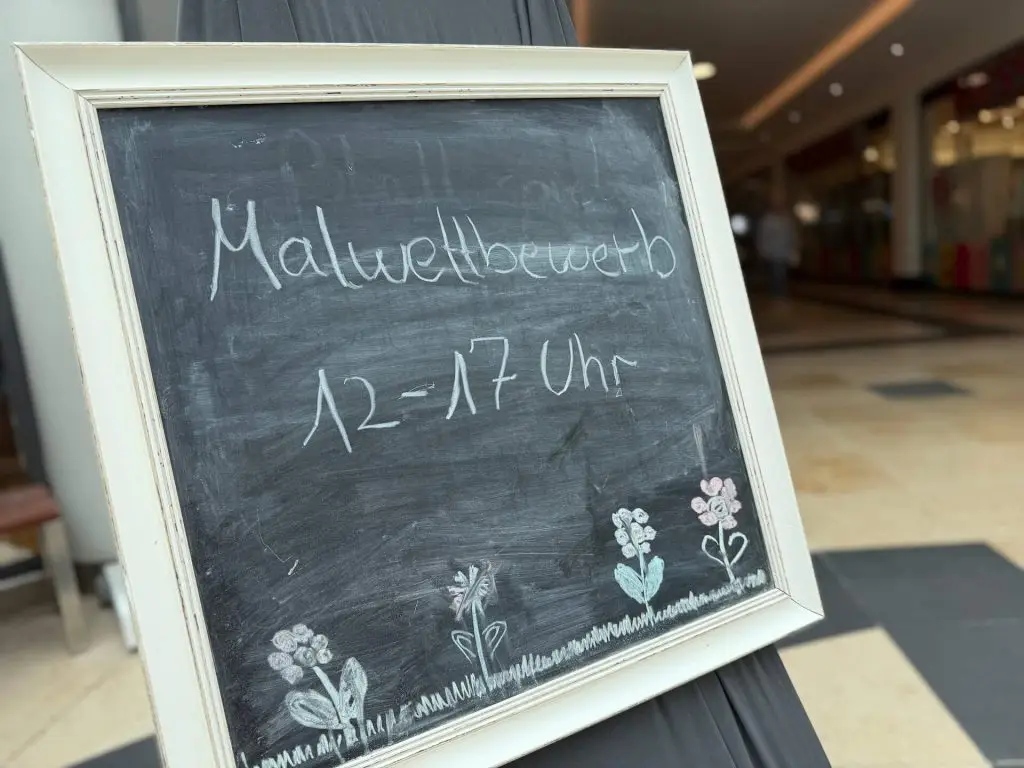 Malwettbewerb
12-17 Uhr